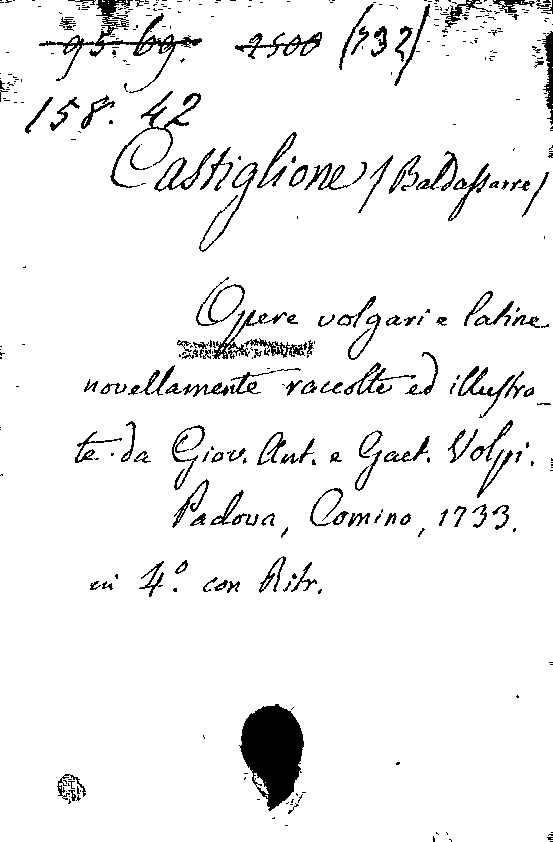 95. 69. 2500 (732)
158. 42
Castiglione / Baldassarre /
Opere volgari e latine
novellamente raccolte ed illustra_
te da Giov. Ant. e Gaet. Volpi.
Padova, Comino, 1733.
in 4.º con Ritr.